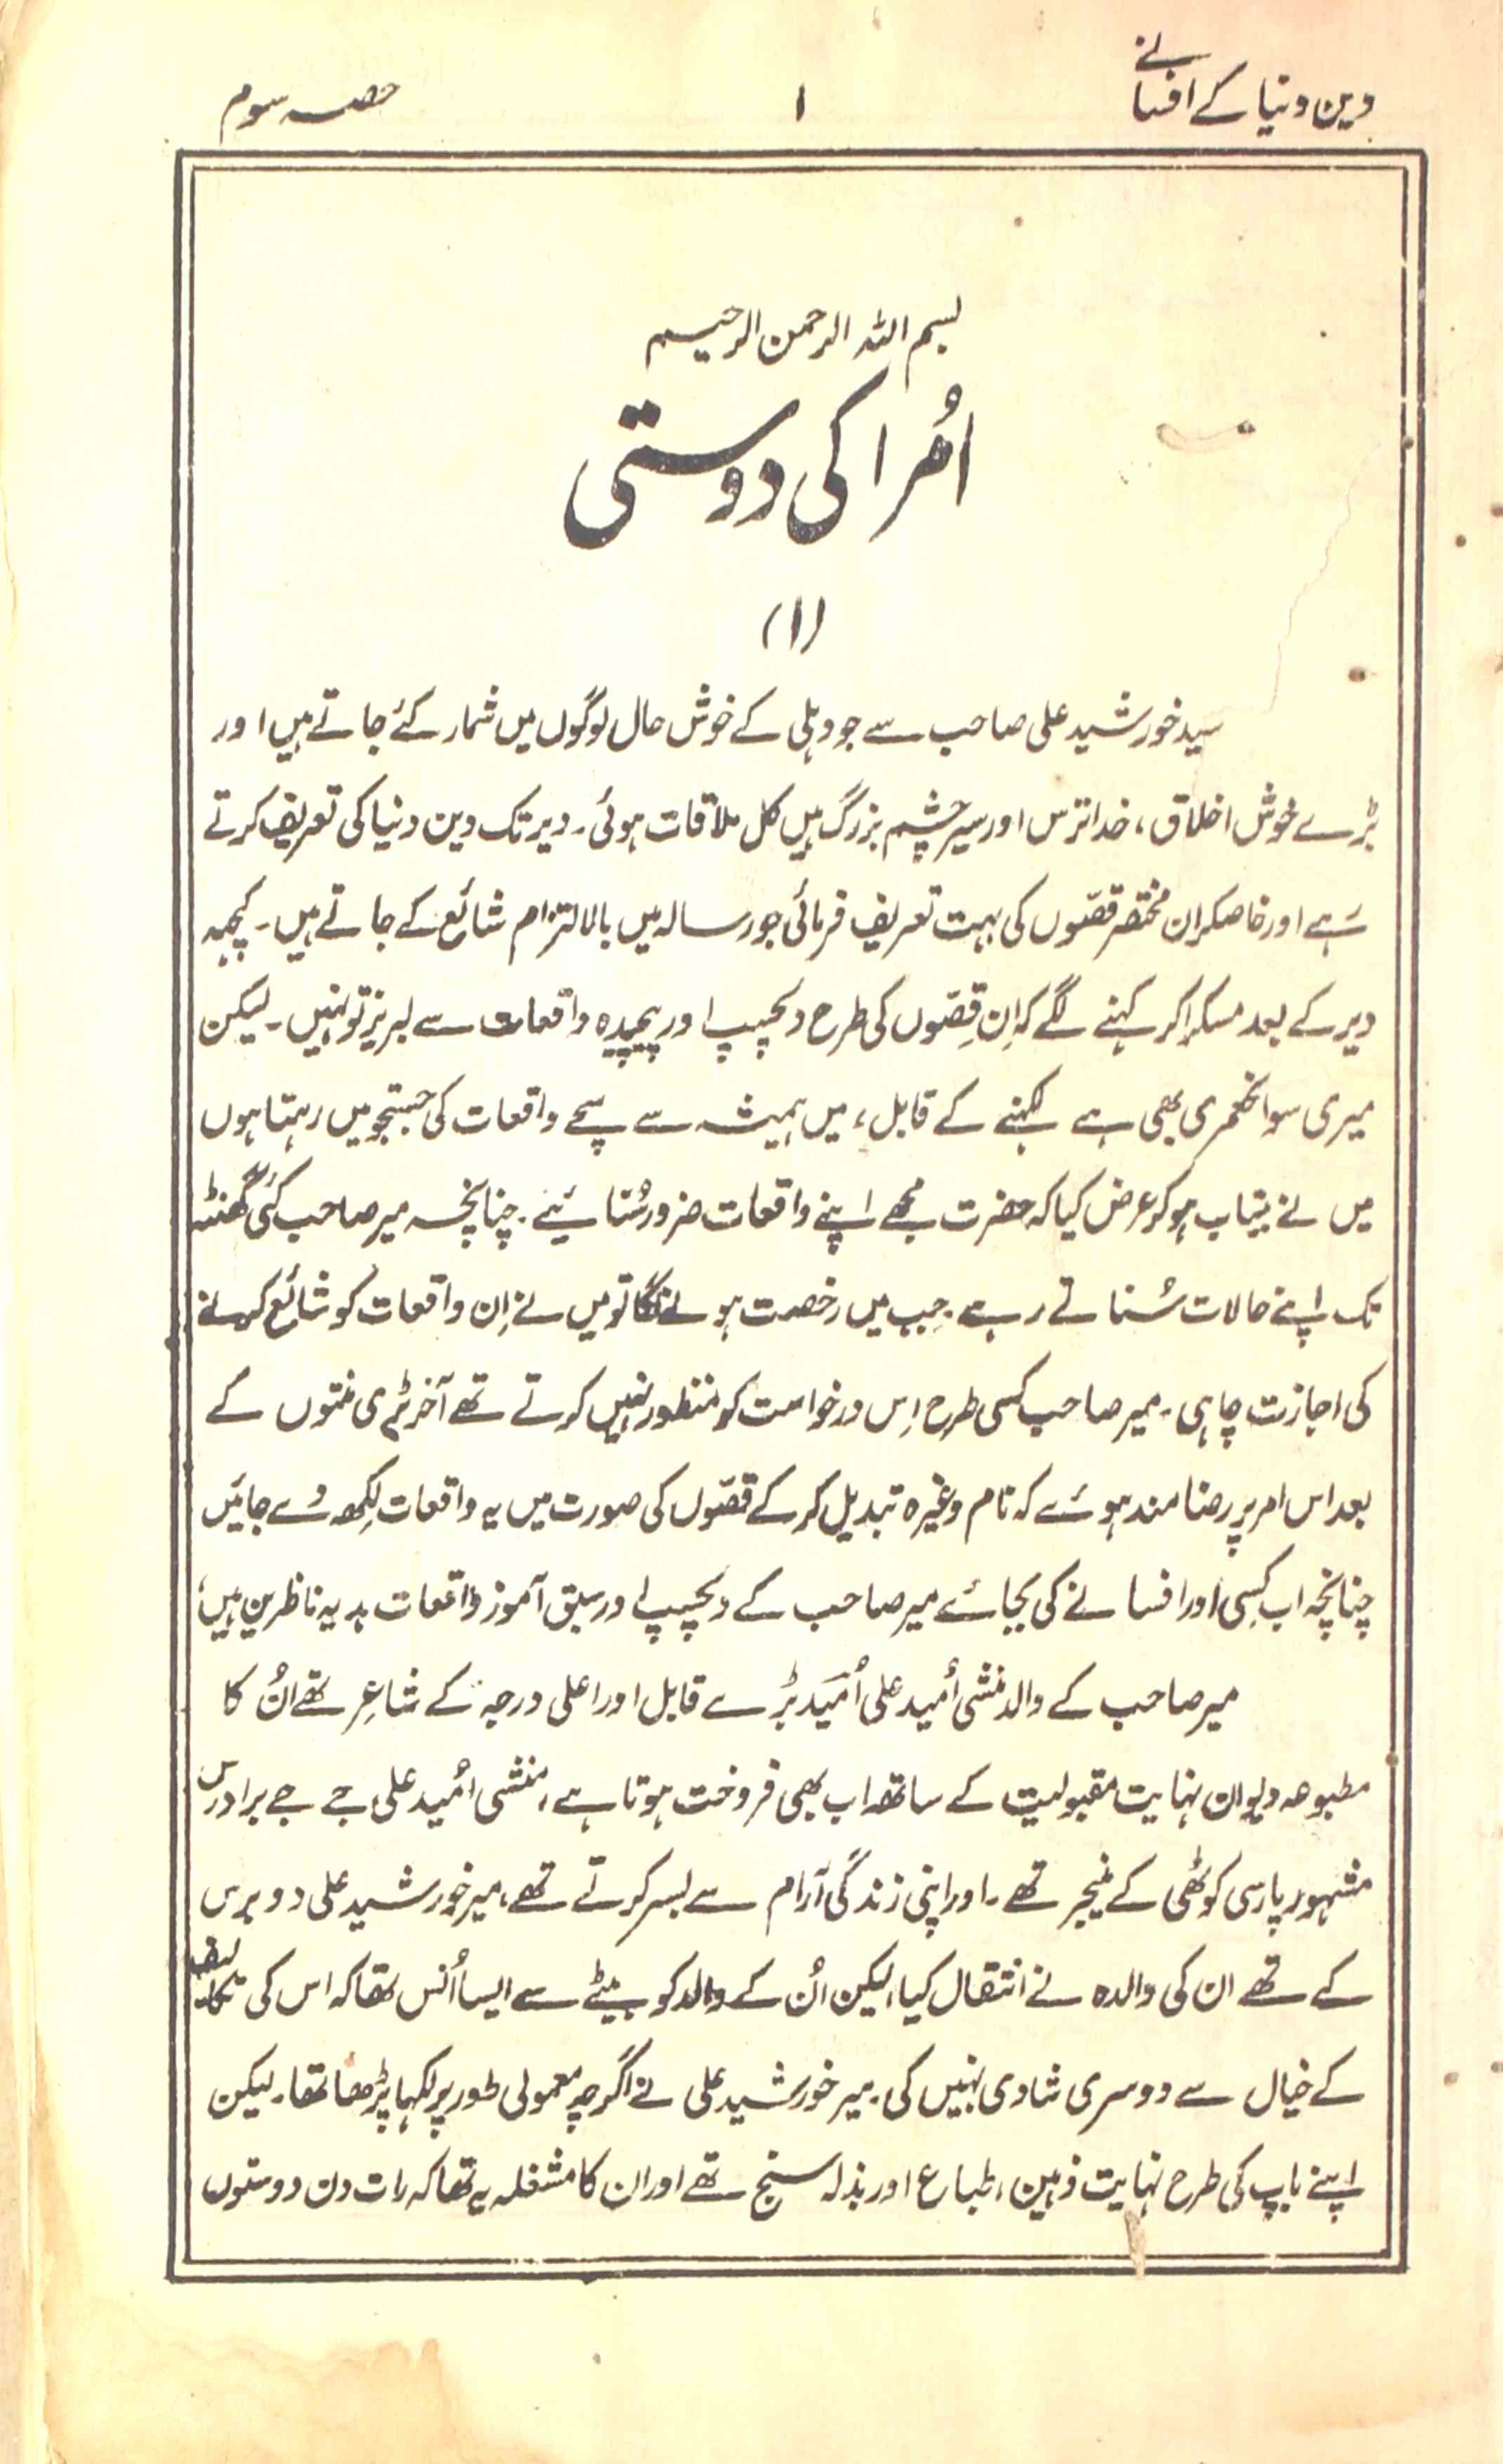 دین دنیا کے افسانے
۱
حصہ سوم
بسم اللہ الرحمن الرحیم
اُمرا کی دوستی
(۱)
سید خورشید علی صاحب سے جو دہلی کے خوش حال لوگوں میں شمار کئے جاتے ہیں اور
بڑے خوش اخلاق، خدا ترس اور سیر چشم بزرگ ہیں کل ملاقات ہوئی۔ دیر تک دین دنیا کی تعریف کرتے
رہے اور خاصکر ان مختصر قصّوں کی بہت تعریف فرمائی جو رسالہ میں بالالتزام شائع کے جاتے ہیں۔ کچہہ
دیر کے بعد مسکرا کر کہنے لگے کہ اِن قِصّوں کی طرح دلچسپ اور پیچیدہ واقعات سے لبریز تو نہیں۔ لیکن
میری سوانحعمری بھی ہے لکہنے کے قابل، میں ہمیشہ سے سچے واقعات کی جستجو میں رہتا ہوں
میں نے بیتاب ہو کر عرض کیا کہ حضرت مجھے اپنے واقعات ضرور سُنائیے۔ چنانچہ میر صاحب کئی گھنٹہ
تک اپنے حالات سُناتے رہے۔ جب میں رخصت ہونے لگا تو میں نے اِن واقعات کو شائع کرنے
کی اجازت چاہی۔ میر صاحب کسی طرح اِس درخواست کو منظور نہیں کرتے تھے آخر بڑی منتوں کے
بعد اس امر پر رضامند ہوئے کہ نام وغیرہ تبدیل کر کے قصّوں کی صورت میں یہ واقعات لِکھ دئے جائیں
چنانچہ اب کِسی اور افسانے کی بجائے میر صاحب کے دلچسپ اور سبق آموز واقعات ہدیہ ناظرین ہیں،
میر صاحب کے والد منشی اُمید علی اُمیَد بڑے قابل اور اعلی درجہ کے شاعِر تھے اُن کا
مطبوعہ دیوان نہایت مقبولیت کے ساتھ اب بھی فروخت ہوتا ہے، منشی اُمید علی جے جے برادرس
مشہور پارسی کوٹھی کے منیجر تھے۔ اور اپنی زندگی آرام سے بسر کرتے تھے، میر خورشید علی دو برس
کے تھے ان کی والدہ نے انتقال کیا، لیکن اُن کے والد کو بیٹے سے ایسا اُنس تھا کہ اس کی تکالیف
کے خیال سے دوسری شادی نہیں کی۔ میر خورشید علی نے اگرچہ معمولی طور پر لکہا پڑھا تھا۔ لیکن
اپنے باپ کی طرح نہایت ذہین، طباع اور بذلہ سنج تھے اور ان کا مشغلہ یہ تھا کہ رات دن دوستوں